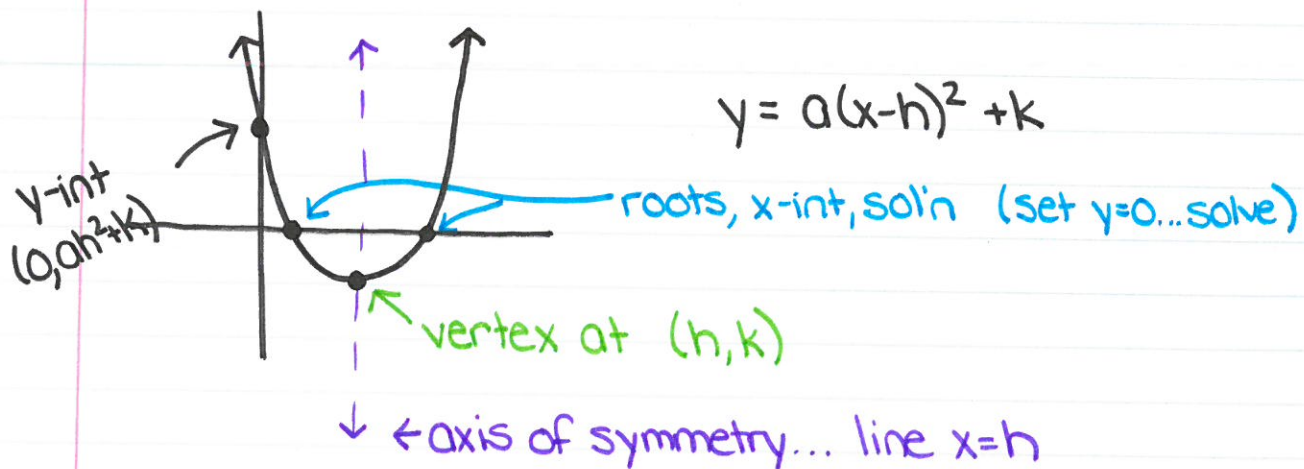 y = a(x-h)² + k
y-int
(0, ah²+k)
roots, x-int, sol'n (set y=0...solve)
vertex at (h,k)
←axis of symmetry... line x=h